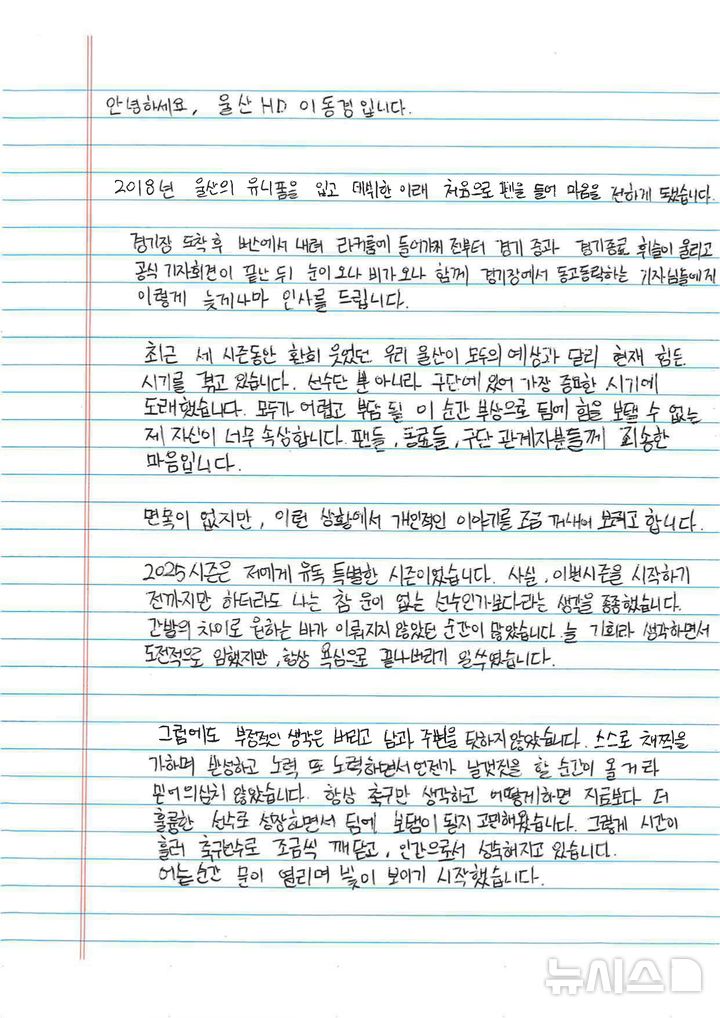 안녕하세요, 울산 HD 이동경입니다.
2018년 울산의 유니폼을 입고 데뷔한 이래 처음으로 펜을 들어 마음을 전하게 됐습니다.
경기장 도착 후 버스에서 내려 라커룸에 들어가기 전부터 경기 중과 경기종료 휘슬이 울리고
공식 기자회견이 끝난 뒤 눈이 오나 비가 오나 함께 경기장에서 동고동락하는 기자님들에게
이렇게 늦게나마 인사를 드립니다.
최근 세 시즌동안 환히 웃었던 우리 울산이 모두의 예상과 달리 현재 힘든
시기를 겪고 있습니다. 선수단 뿐 아니라 구단에 있어 가장 중요한 시기에
도래했습니다. 모두가 어렵고 부담 될 이 순간 부상으로 팀에 힘을 보탤 수 없는
제 자신이 너무 속상합니다. 팬들, 동료들, 구단 관계자분들께 죄송한
마음입니다.
면목이 없지만, 이런 상황에서 개인적인 이야기를 조금 꺼내어 보려고 합니다.
2025시즌은 저에게 유독 특별한 시즌이었습니다. 사실, 이번시즌을 시작하기
전까지만 하더라도 나는 참 운이 없는 선수인가보다라는 생각을 종종했습니다.
간발의 차이로 원하는 바가 이뤄지지 않았던 순간이 많았습니다. 늘 기회라 생각하면서
도전적으로 임했지만, 항상 욕심으로 끝나버리기 일쑤였습니다.
그럼에도 부정적인 생각은 버리고 남과 주변을 탓하지 않았습니다. 스스로 채찍을
가하며 반성하고 노력 또 노력하면서 언젠가 날갯짓을 할 순간이 올 거라
믿어 의심치 않았습니다. 항상 축구만 생각하고 어떻게하면 지금보다 더
훌륭한 선수로 성장하면서 팀에 보탬이 될지 고민해왔습니다. 그렇게 시간이
흘러 축구선수로 조금씩 깨닫고, 인간으로서 성숙해지고 있습니다.
어느순간 문이 열리며 빛이 보이기 시작했습니다.
뉴시스